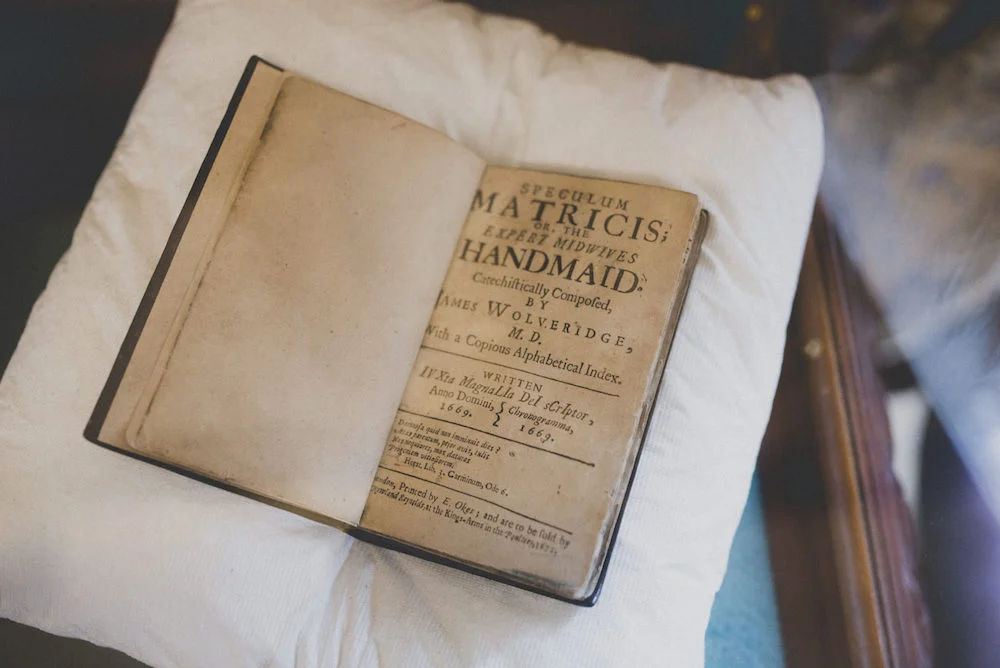 SPECULUM
MATRICIS;
OR, THE
EXPERT MIDWIVES
HANDMAID.
Catechiſtically Compoſed,
BY
JAMES WOLVERIDGE,
M. D.
With a Copious Alphabetical Index.
WRITTEN
IVXta MagnaLIa DeI sCrIptor,
Anno Domini, { Chronogramma,
1669. 1669.
Damnoſa quid non imminuit dies?
Ætas parentum, pejor avis, tulit
Nos nequiores, mox daturos
Progeniem vitioſiorem.
Horat. Lib. 3. Carminum, Ode 6.
London, Printed by E. Okes; and are to be ſold by
Rowland Reynolds, at the Kings-Arms in the Poultrey, 1671.